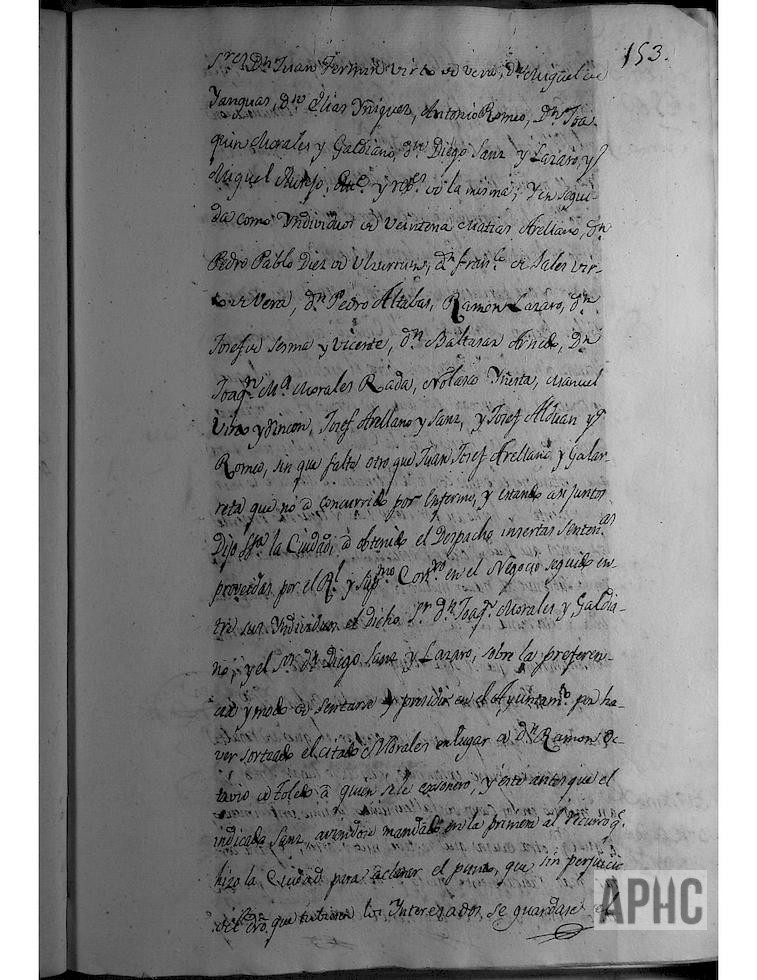 153.
S.res D.n Juan Fermin Virto de Vera, D.n Miguel de
Yanguas, d.n Elias Yñiguez, Antonio Romeo, D.n Joa-
quin Morales y Galdiano, d.n Diego Sanz y Lazaro, y
Miguel Aurejo, y de la misma; Y en segui-
da como Yndividuos de Veintena Matias Arellano, d.n
Pedro Pablo Diez de Ulzurrun, d.n fran.co de Sales Vir-
to de Vera, d.n Pedro Altabas, Ramon Lazaro, d.n
Josef de Serma y Vicente, d.n Baltasar Arnedo, D.n
Joaq.n M.a Morales Rada, Nolasco Yñesta, Manuel
Virto y Rincon, Josef Arellano y Sanz, y Josef Alduan y
Romeo, sin que falte otro que Juan Josef Arellano y Galar-
reta que no à concurrido por enfermo, y estando asi juntos
Dijo la Ciudad, à obtenido el Despacho insertas Senten.as
proveidas por el R.l y Sup.mo Con.xo en el Negocio seguido en-
tre sus Yndividuos el dicho S.or d.n Joaq.n Morales y Galdia-
no, y el S.or d.n Diego Sanz y Lazaro, sobre la preferen-
cia y modo de sentarse y presidir en el Ayuntam.to por ha-
ver sorteado el citado Morales en lugar de d.n Ramon Oc-
tavio de Toledo à quien se le exonero, y este antes que el
indicado Sanz, aviendose mandado en la primera al recurso q.e
hizo la Ciudad para aclarar el punto, que sin perjuicio
del dró, que tubieren los Interesados, se guardase el
APHC